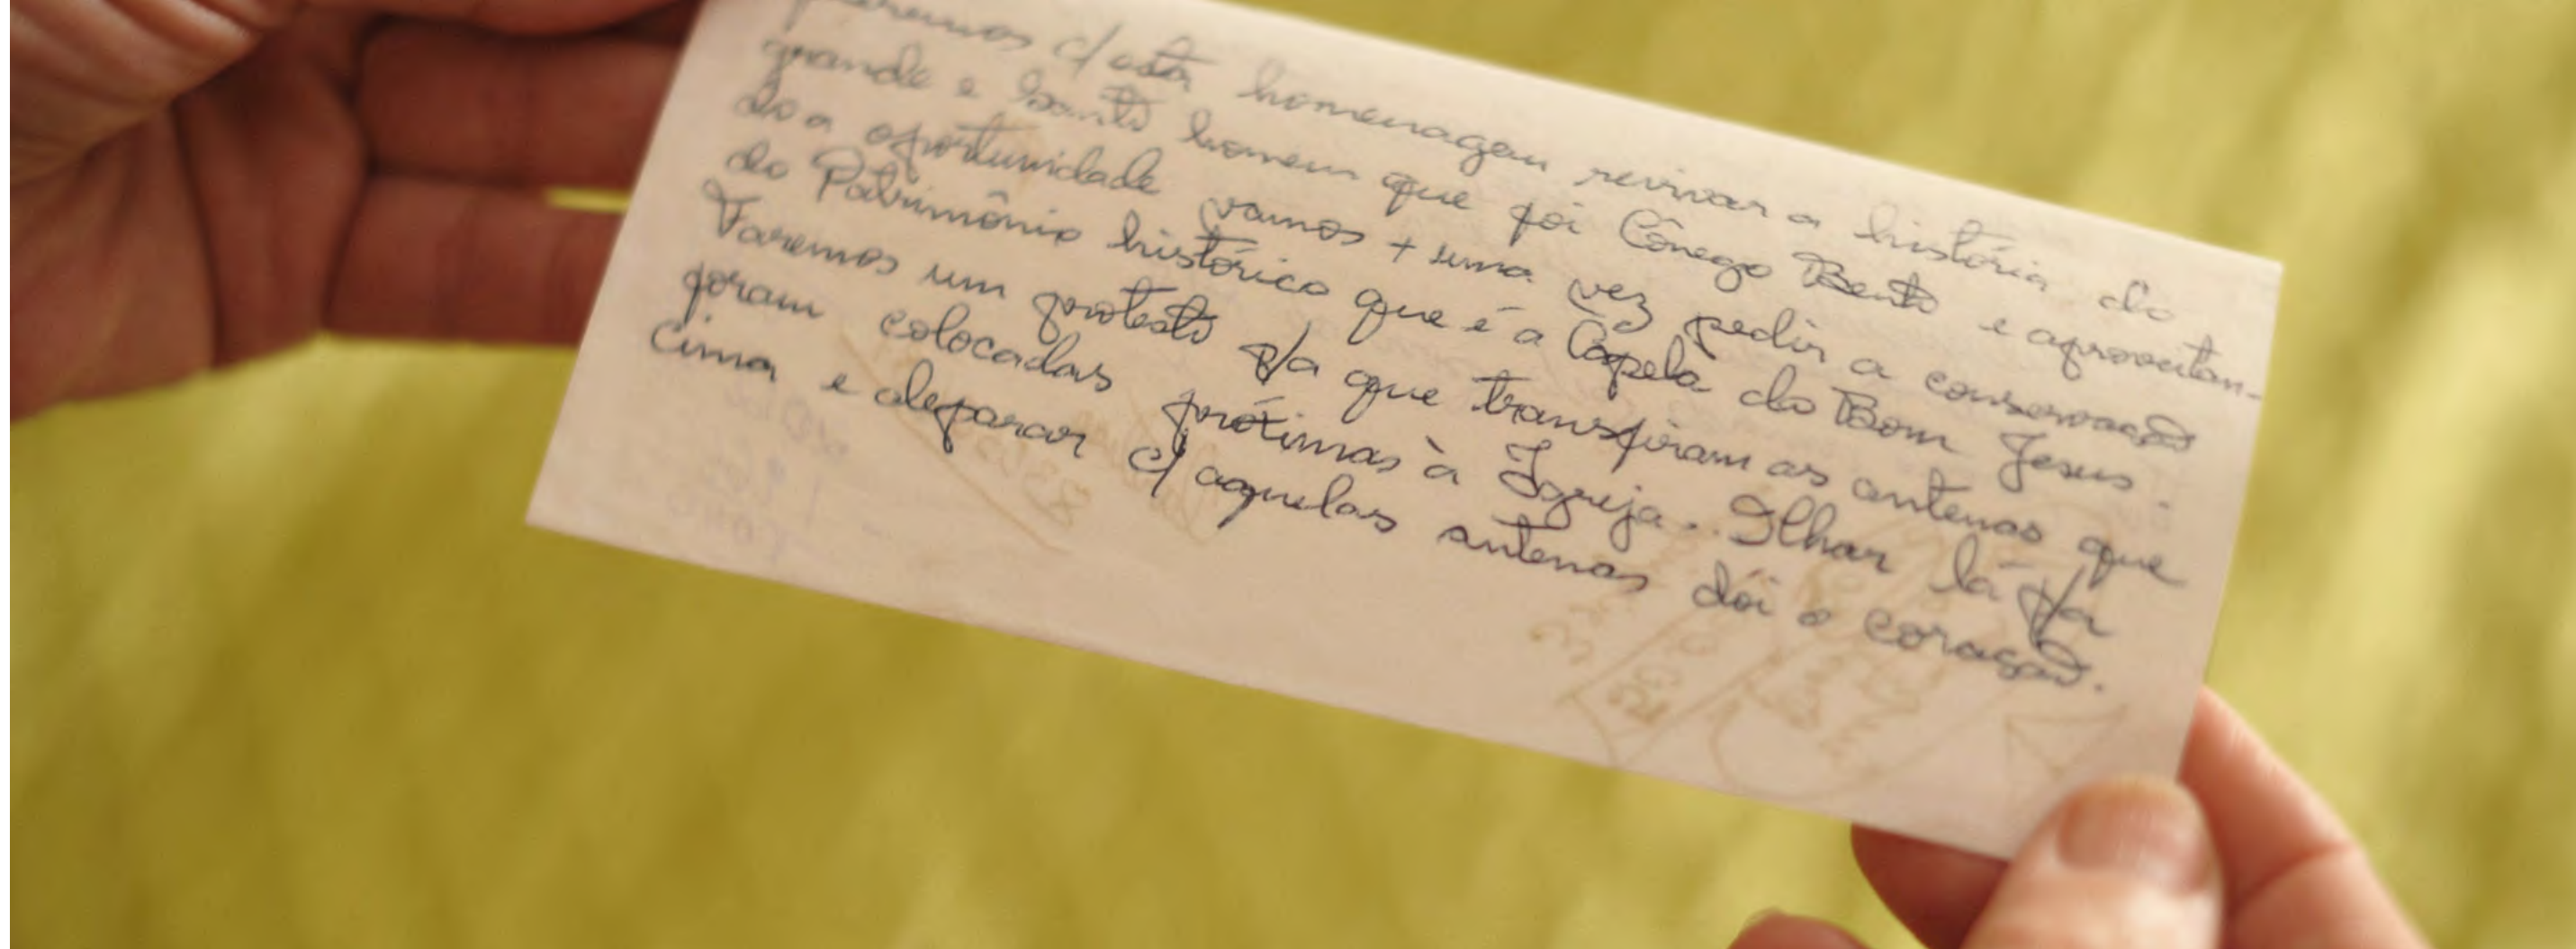 queremos c/ esta homenagem reviver a história do
grande e Santo homem que foi Cônego Bento e aproveitan-
do a oportunidade vamos + uma vez pedir a conservação
do Patrimônio histórico que é a Capela do Bom Jesus.
Faremos um protesto p/a que transfiram as antenas que
foram colocadas próximas à Igreja. Olhar lá p/a
cima e deparar c/ aquelas antenas dói o coração.